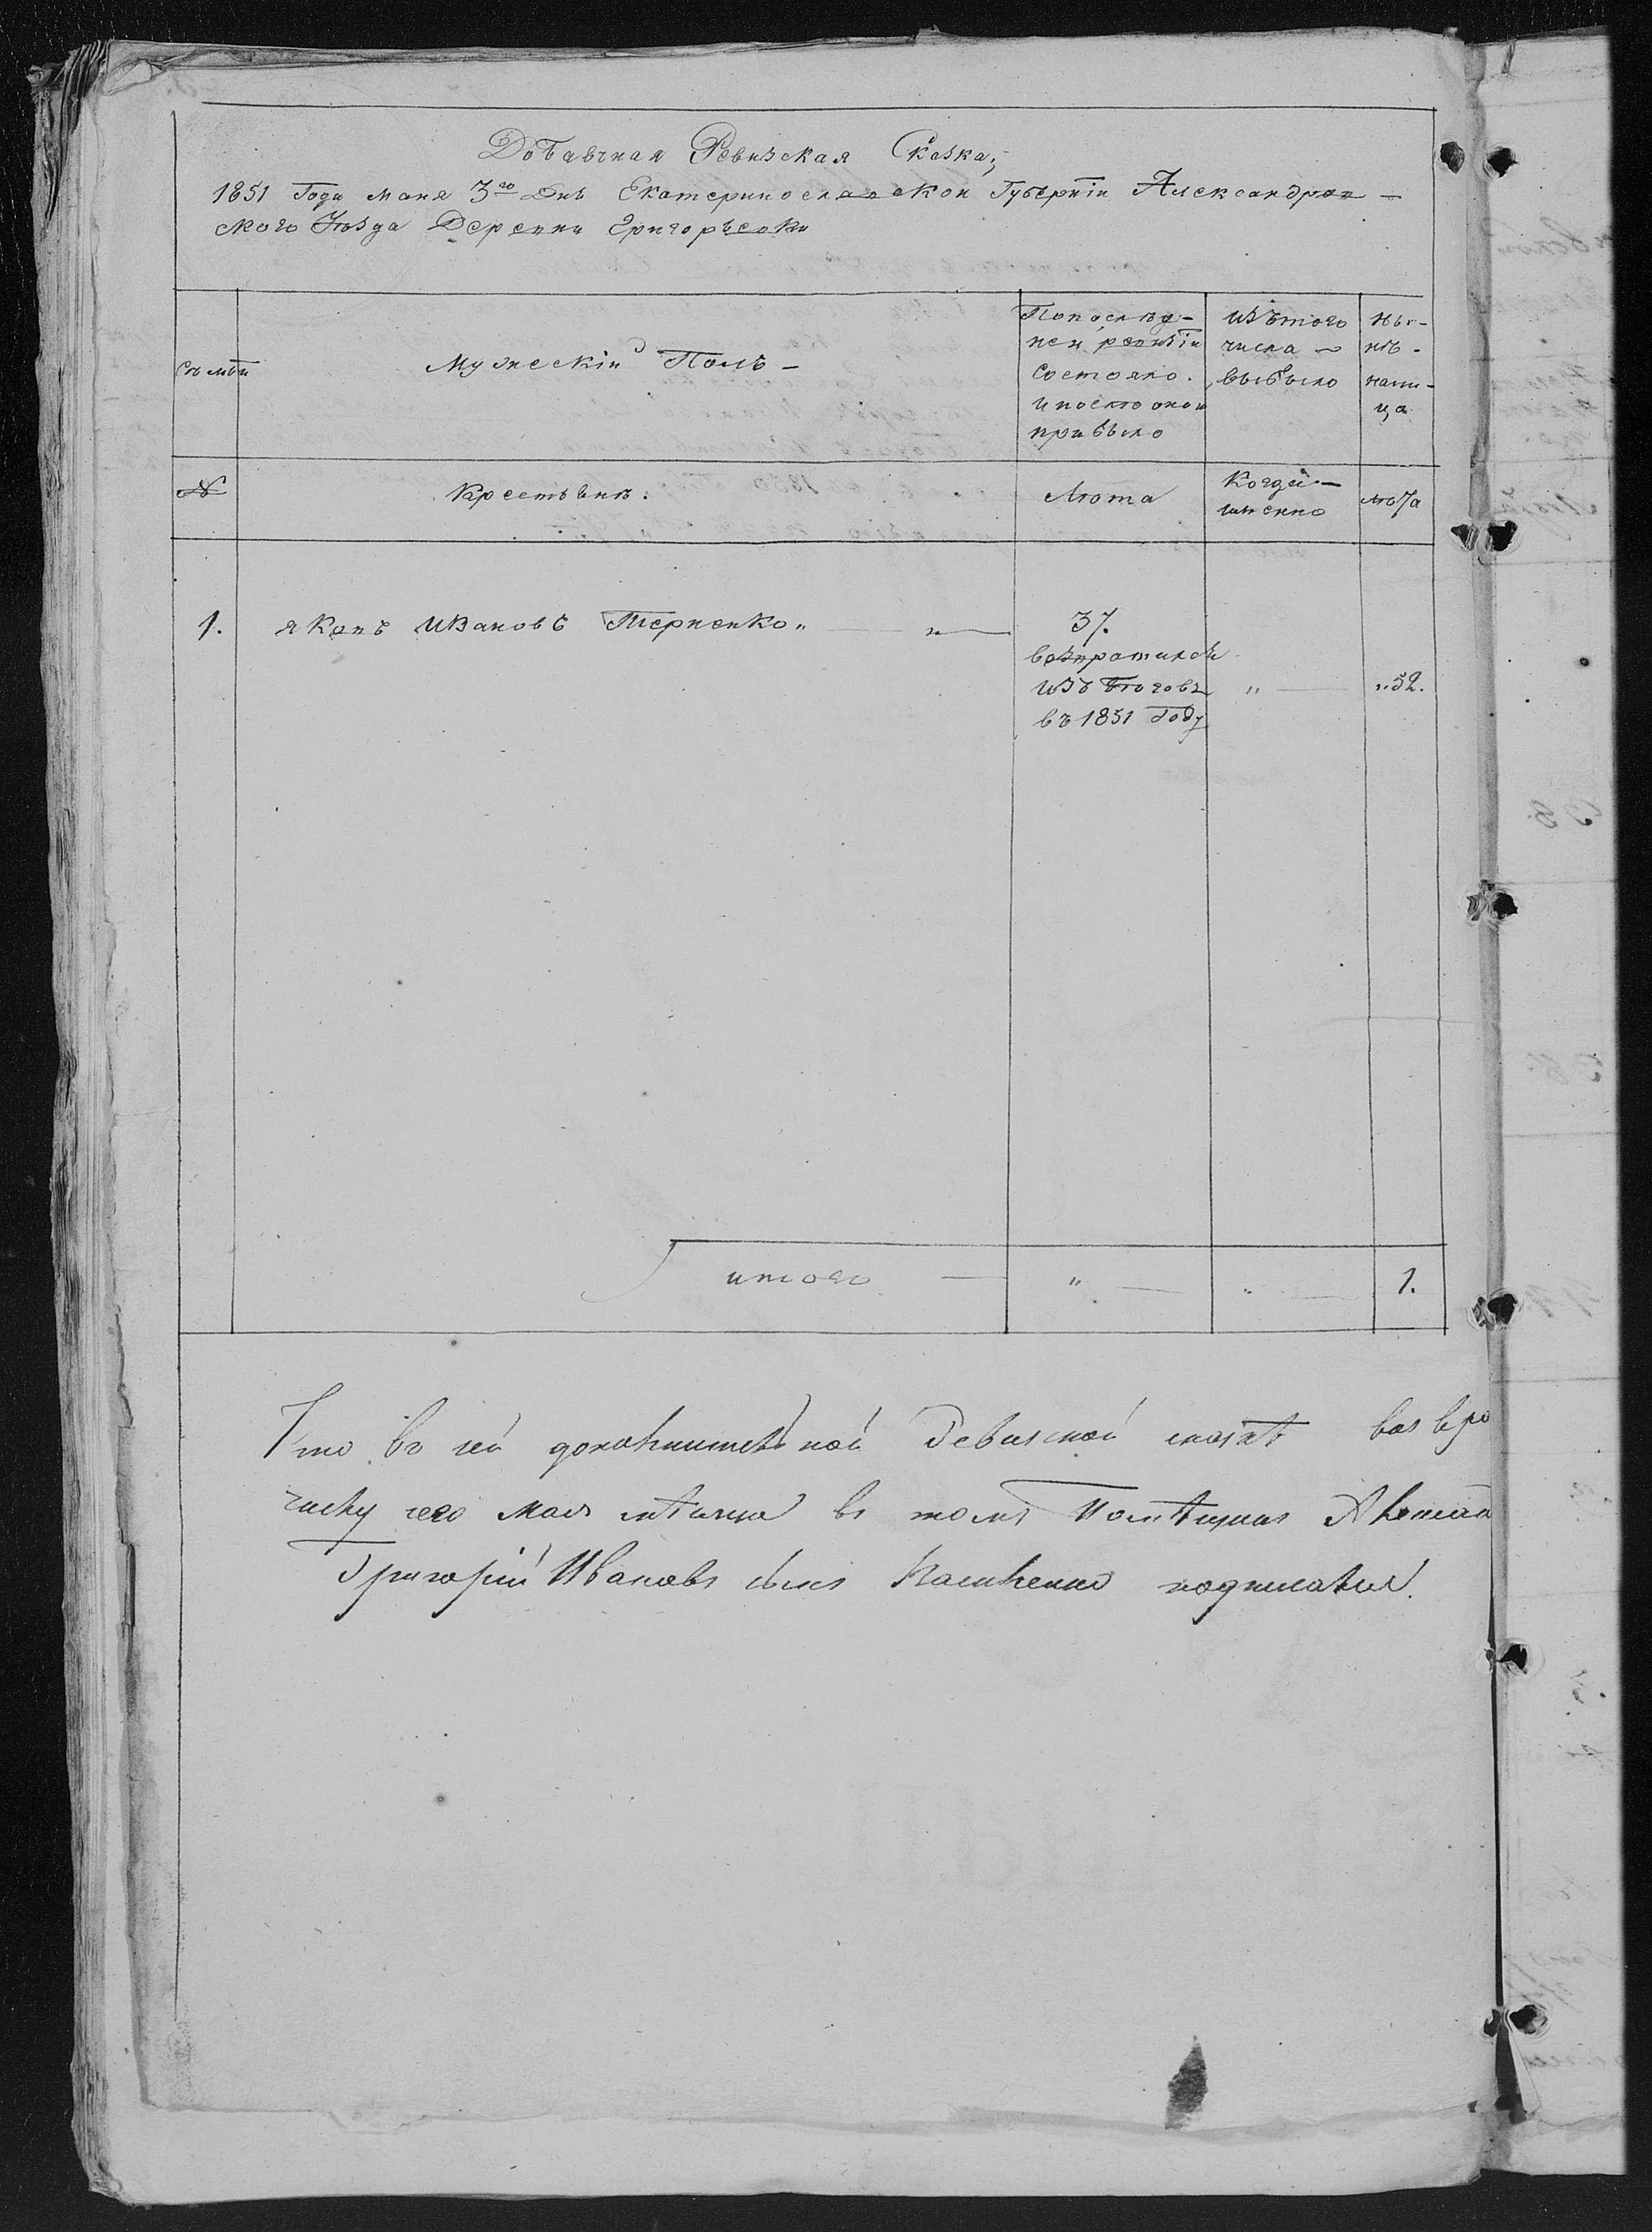 Добавчная Ревизская Сказка,
1851 Года мая 3го Дня Екатеринославской Губернiи Александров-
ского Уѣзда Деревни Григорьевки
Семьи
Мужескiй Полъ -
Попослѣд-
ней ревизiи
Состояло.
И послѣ оной
прибыло
Изътого
числа
выбыло
ны-
нѣ.
нали-
ца
№
Крестьянѣ:
Лѣта
Когда -
имянно
лѣта
1. Яковъ Ивановъ Терненко „ — „ —
37.
возвратился
изъ бѣговъ
въ 1851 Году
„ —
„ 52.
итого — „ — „ — 1.
Что въ сей дополнительной Ревизской сказкѣ
Помѣщикъ
Григорiй Ивановъ сынъ подписался.